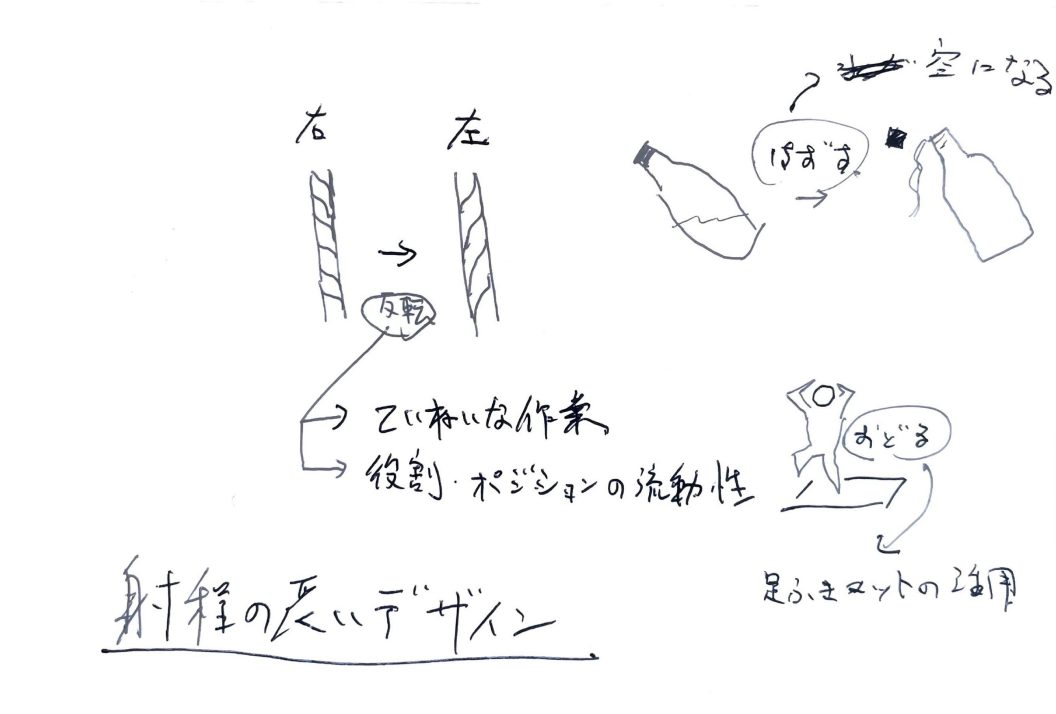 右
左
反転
ていねいな作業
役割・ポジションの流動性
空になる
はずす
おどる
足ふきマットの
射程の長いデザイン